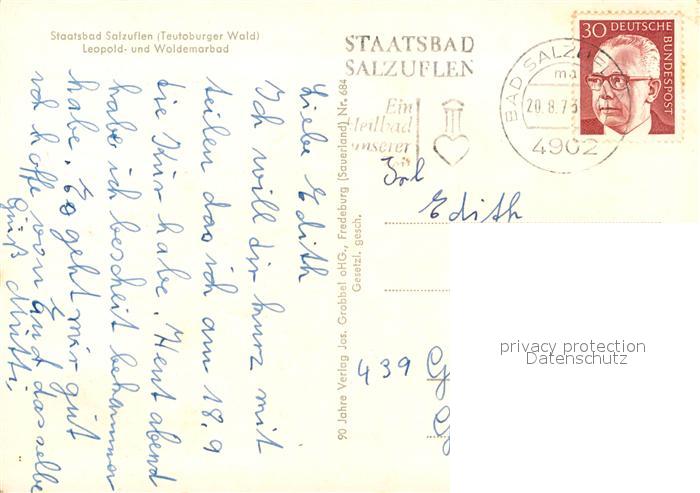 Staatsbad Salzuflen (Teutoburger Wald)
Leopold- und Woldemarbad
Liebe Edith
Ich will dir kurz mit
teilen das ich am 18.9
die Kur habe. Heut abend
habe ich bescheit bekommen
habe. Es geht mir gut
ich hoffe von Euch dasselbe
Gruß Mutti
90 Jahre Verlag Jos. Grobbel oHG., Fredeburg (Sauerland) Nr. 684
Gesetzl. gesch.
STAATSBAD
SALZUFLEN
Ein
Heilbad
unserer
Zeit
BAD SALZUFLEN
ma
20.8.73
4902
30 DEUTSCHE
BUNDESPOST
Frl
Edith
439 G
G
privacy protection
Datenschutz